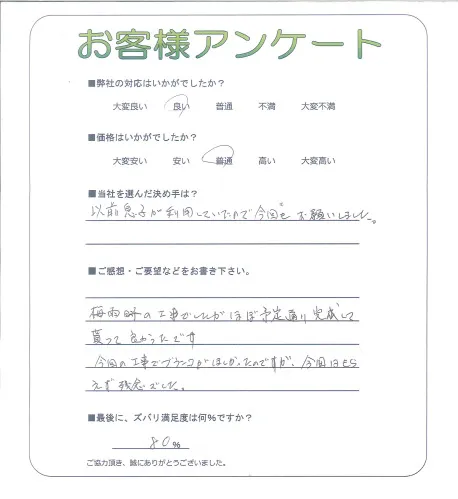 お客様アンケート
■弊社の対応はいかがでしたか？
大変良い 良い 普通 不満 大変不満
■価格はいかがでしたか？
大変安い 安い 普通 高い 大変高い
■当社を選んだ決め手は？
以前息子が利用していたので今回もお願いしました。
■ご感想・ご要望などをお書き下さい。
梅雨時の工事でしたがほぼ予定通り完成して
貰って良かったです
今回の工事でブランコがほしかったのですが、今回はもら
えず残念でした。
■最後に、ズバリ満足度は何％ですか？
80％
ご協力頂き、誠にありがとうございました。